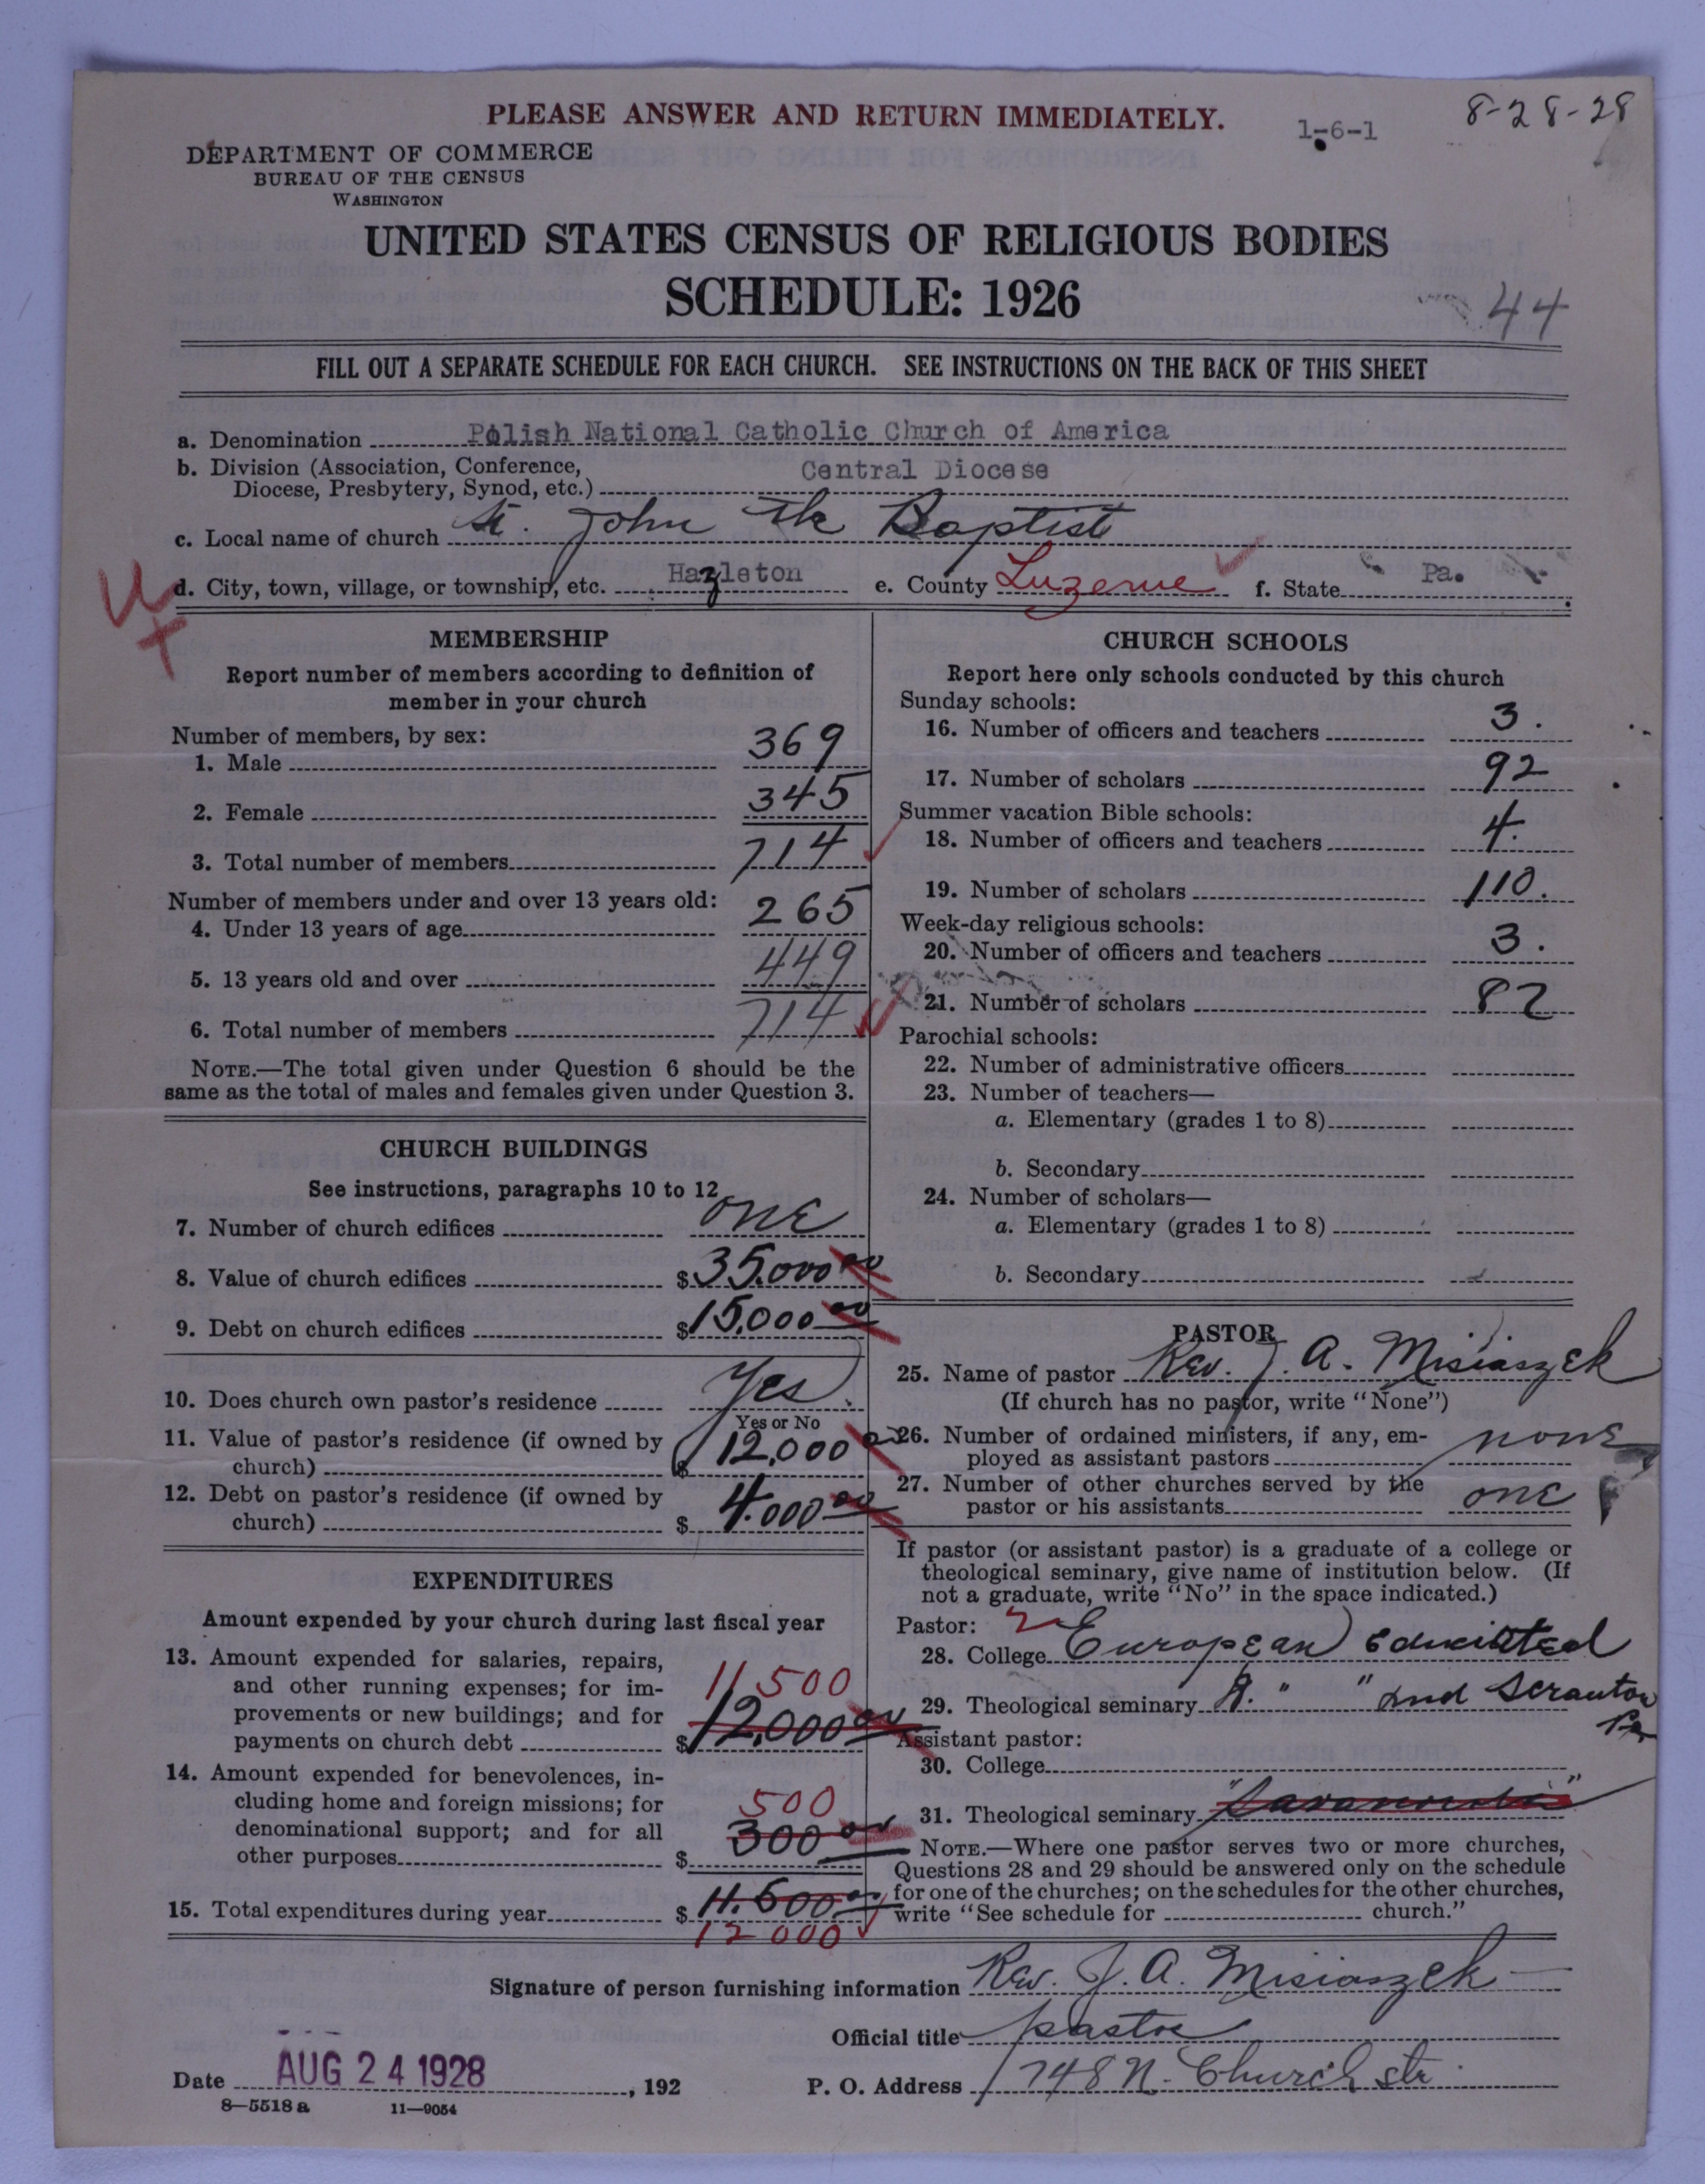 PLEASE ANSWER AND RETURN IMMEDIATELY.
1-6-1
8-28-28
DEPARTMENT OF COMMERCE
BUREAU OF THE CENSUS
WASHINGTON
UNITED STATES CENSUS OF RELIGIOUS BODIES
SCHEDULE: 1926
44
FILL OUT A SEPARATE SCHEDULE FOR EACH CHURCH. SEE INSTRUCTIONS ON THE BACK OF THIS SHEET
a. Denomination Polish National Catholic Church of America
b. Division (Association, Conference, Diocese, Presbytery, Synod, etc.) Central Diocese
c. Local name of church St. John The Baptist
d. City, town, village, or township, etc. Hazleton e. County Luzerne f. State Pa.
MEMBERSHIP
Report number of members according to definition of
member in your church
Number of members, by sex:
1. Male 369
2. Female 345
3. Total number of members 714
Number of members under and over 13 years old:
4. Under 13 years of age 265
5. 13 years old and over 449
6. Total number of members 714
NOTE.—The total given under Question 6 should be the
same as the total of males and females given under Question 3.
CHURCH BUILDINGS
See instructions, paragraphs 10 to 12
7. Number of church edifices one
8. Value of church edifices $35.000 00
9. Debt on church edifices $15,000 00
10. Does church own pastor's residence Yes.
Yes or No
11. Value of pastor's residence (if owned by
church) $12,000
12. Debt on pastor's residence (if owned by
church) $4.000 00
EXPENDITURES
Amount expended by your church during last fiscal year
13. Amount expended for salaries, repairs,
and other running expenses; for im-
provements or new buildings; and for
payments on church debt $12,000 00
11 500
14. Amount expended for benevolences, in-
cluding home and foreign missions; for
denominational support; and for all
other purposes $300 00
500
15. Total expenditures during year $11.500 00
12 000
CHURCH SCHOOLS
Report here only schools conducted by this church
Sunday schools:
16. Number of officers and teachers 3.
17. Number of scholars 92
Summer vacation Bible schools:
18. Number of officers and teachers 4.
19. Number of scholars 110.
Week-day religious schools:
20. Number of officers and teachers 3.
21. Number of scholars 82
Parochial schools:
22. Number of administrative officers
23. Number of teachers—
a. Elementary (grades 1 to 8)
b. Secondary
24. Number of scholars—
a. Elementary (grades 1 to 8)
b. Secondary
PASTOR
25. Name of pastor Rev. J. A. Misiaszek
(If church has no pastor, write "None")
26. Number of ordained ministers, if any, em-
ployed as assistant pastors none
27. Number of other churches served by the
pastor or his assistants one
If pastor (or assistant pastor) is a graduate of a college or
theological seminary, give name of institution below. (If
not a graduate, write "No" in the space indicated.)
Pastor:
28. College European educated
29. Theological seminary " " and Scranton Pa
Assistant pastor:
30. College
31. Theological seminary
NOTE.—Where one pastor serves two or more churches,
Questions 28 and 29 should be answered only on the schedule
for one of the churches; on the schedules for the other churches,
write "See schedule for church."
Signature of person furnishing information Rev. J. A. Misiaszek
Official title pastor
Date AUG 24 1928, 192
P. O. Address 748 N. Church str.
8—5518 a 11—9054